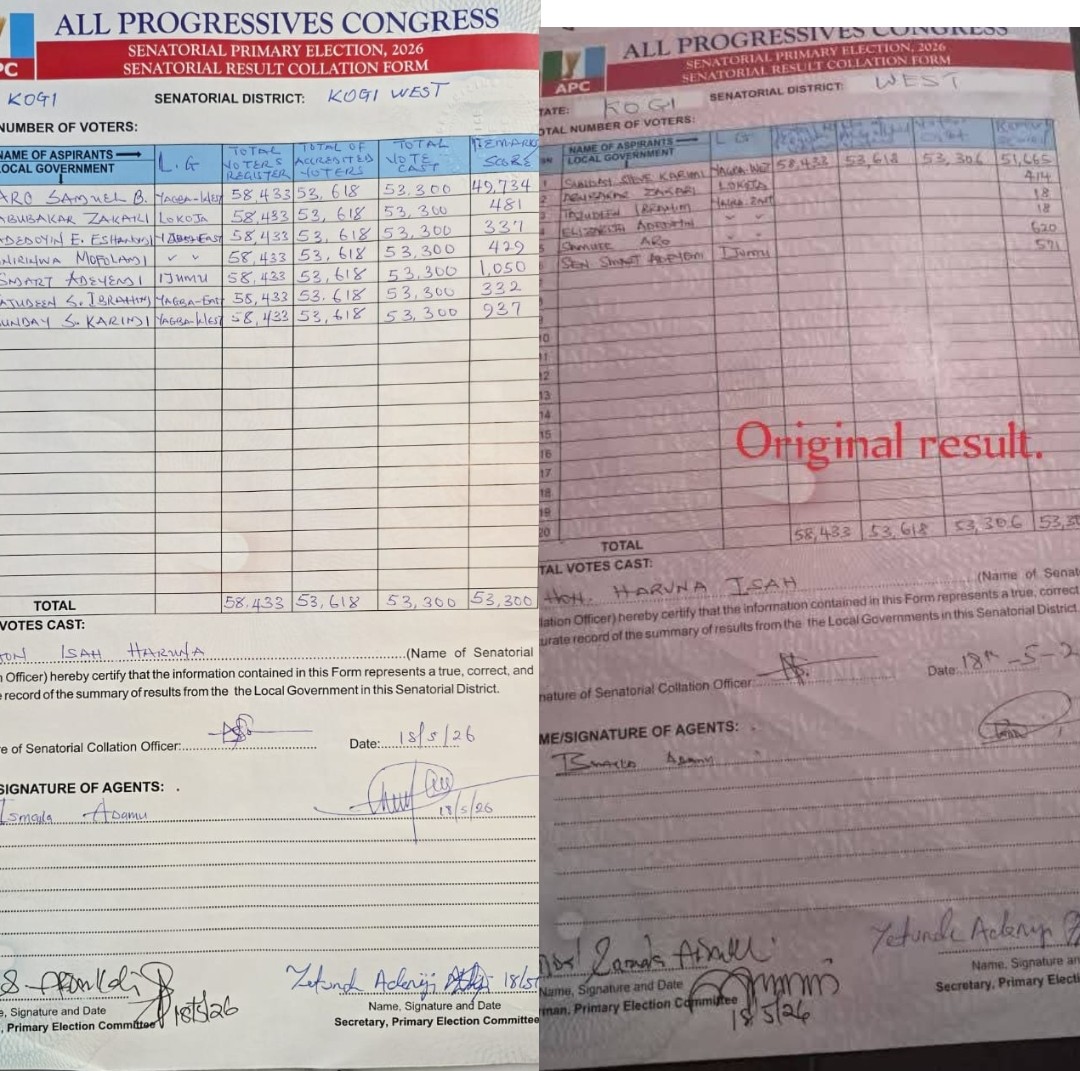 ALL PROGRESSIVES CONGRESS
SENATORIAL PRIMARY ELECTION, 2026
SENATORIAL RESULT COLLATION FORM
PC
KOGI SENATORIAL DISTRICT: KOGI WEST
NUMBER OF VOTERS:
NAME OF ASPIRANTS
LOCAL GOVERNMENT
L.G
TOTAL VOTERS REGISTER
TOTAL OF ACCREDITED VOTERS
TOTAL VOTE CAST
REMARK SCORE
ARO SAMUEL B. YAGBA-WEST 58,433 53,618 53,300 49,734
ABUBAKAR ZAKARI LOKOJA 58,433 53,618 53,300 481
ADEDOYIN E. 58,433 53,618 53,300 337
MOFOLAMI 〃 〃 58,433 53,618 53,300 429
SMART ADEYEMI IJUMU 58,433 53,618 53,300 1,050
TAJUDEEN S. IBRAHIM YAGBA-EAST 58,433 53,618 53,300 332
SUNDAY S. KARIMI YAGBA-WEST 58,433 53,618 53,300 937
TOTAL 58.433 53,618 53,300 53,300
VOTES CAST:
HON ISAH HARUNA (Name of Senatorial
n Officer) hereby certify that the information contained in this Form represents a true, correct, and
e record of the summary of results from the the Local Government in this Senatorial District.
e of Senatorial Collation Officer: Date: 18/5/26
SIGNATURE OF AGENTS:
Ismaila Adamu
18/5/26
18/5/26
Yetunde Adeniji 18/5
e, Signature and Date
, Primary Election Committee
Name, Signature and Date
Secretary, Primary Election Committee
ALL PROGRESSIVES CONGRESS
SENATORIAL PRIMARY ELECTION, 2026
SENATORIAL RESULT COLLATION FORM
APC
TATE: KOGI SENATORIAL DISTRICT: WEST
OTAL NUMBER OF VOTERS:
SN
NAME OF ASPIRANTS
LOCAL GOVERNMENT
L G
1 SUNDAY STEVE KARIMI YAGBA-WEST 58,433 53,618 53,306 51,665
2 ABUBAKAR ZAKARI LOKOJA 414
3 TAJUDEEN IBRAHIM YAGBA EAST 18
4 ELIZABETH ADEDOYIN 〃 〃 18
5 SAMUEL ARO 〃 〃 620
6 SEN SMART ADEYEMI IJUMU 571
10
11
12
13
14
15
16
17
18
19
20
Original result.
TOTAL 58,433 53,618 53,306 53,30
TAL VOTES CAST:
HON. HARUNA ISAH (Name of Senat
lation Officer) hereby certify that the information contained in this Form represents a true, correct
urate record of the summary of results from the the Local Governments in this Senatorial District
nature of Senatorial Collation Officer: Date: 18th-5-2
ME/SIGNATURE OF AGENTS:
Ismaila Adamu
Yetunde Adeniji
Name, Signature and Date
man, Primary Election Committee
18/5/26
Name, Signature an
Secretary, Primary Electi